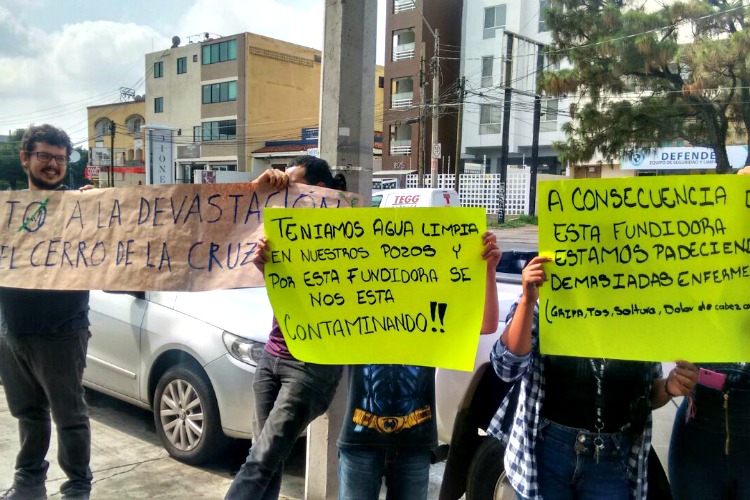 TO A LA DEVASTACIÓN
EL CERRO DE LA CRUZ
TENÍAMOS AGUA LIMPIA
EN NUESTROS POZOS Y
POR ESTA FUNDIDORA SE
NOS ESTA
CONTAMINANDO!!
A CONSECUENCIA D
ESTA FUNDIDORA
ESTAMOS PADECIEN
DEMASIADAS ENFERME
(GRIPA, Tos, Soltura, Dolor de cabeza
TEGG
DEFENDE
EQUIPO DE SEGURIDAD Y